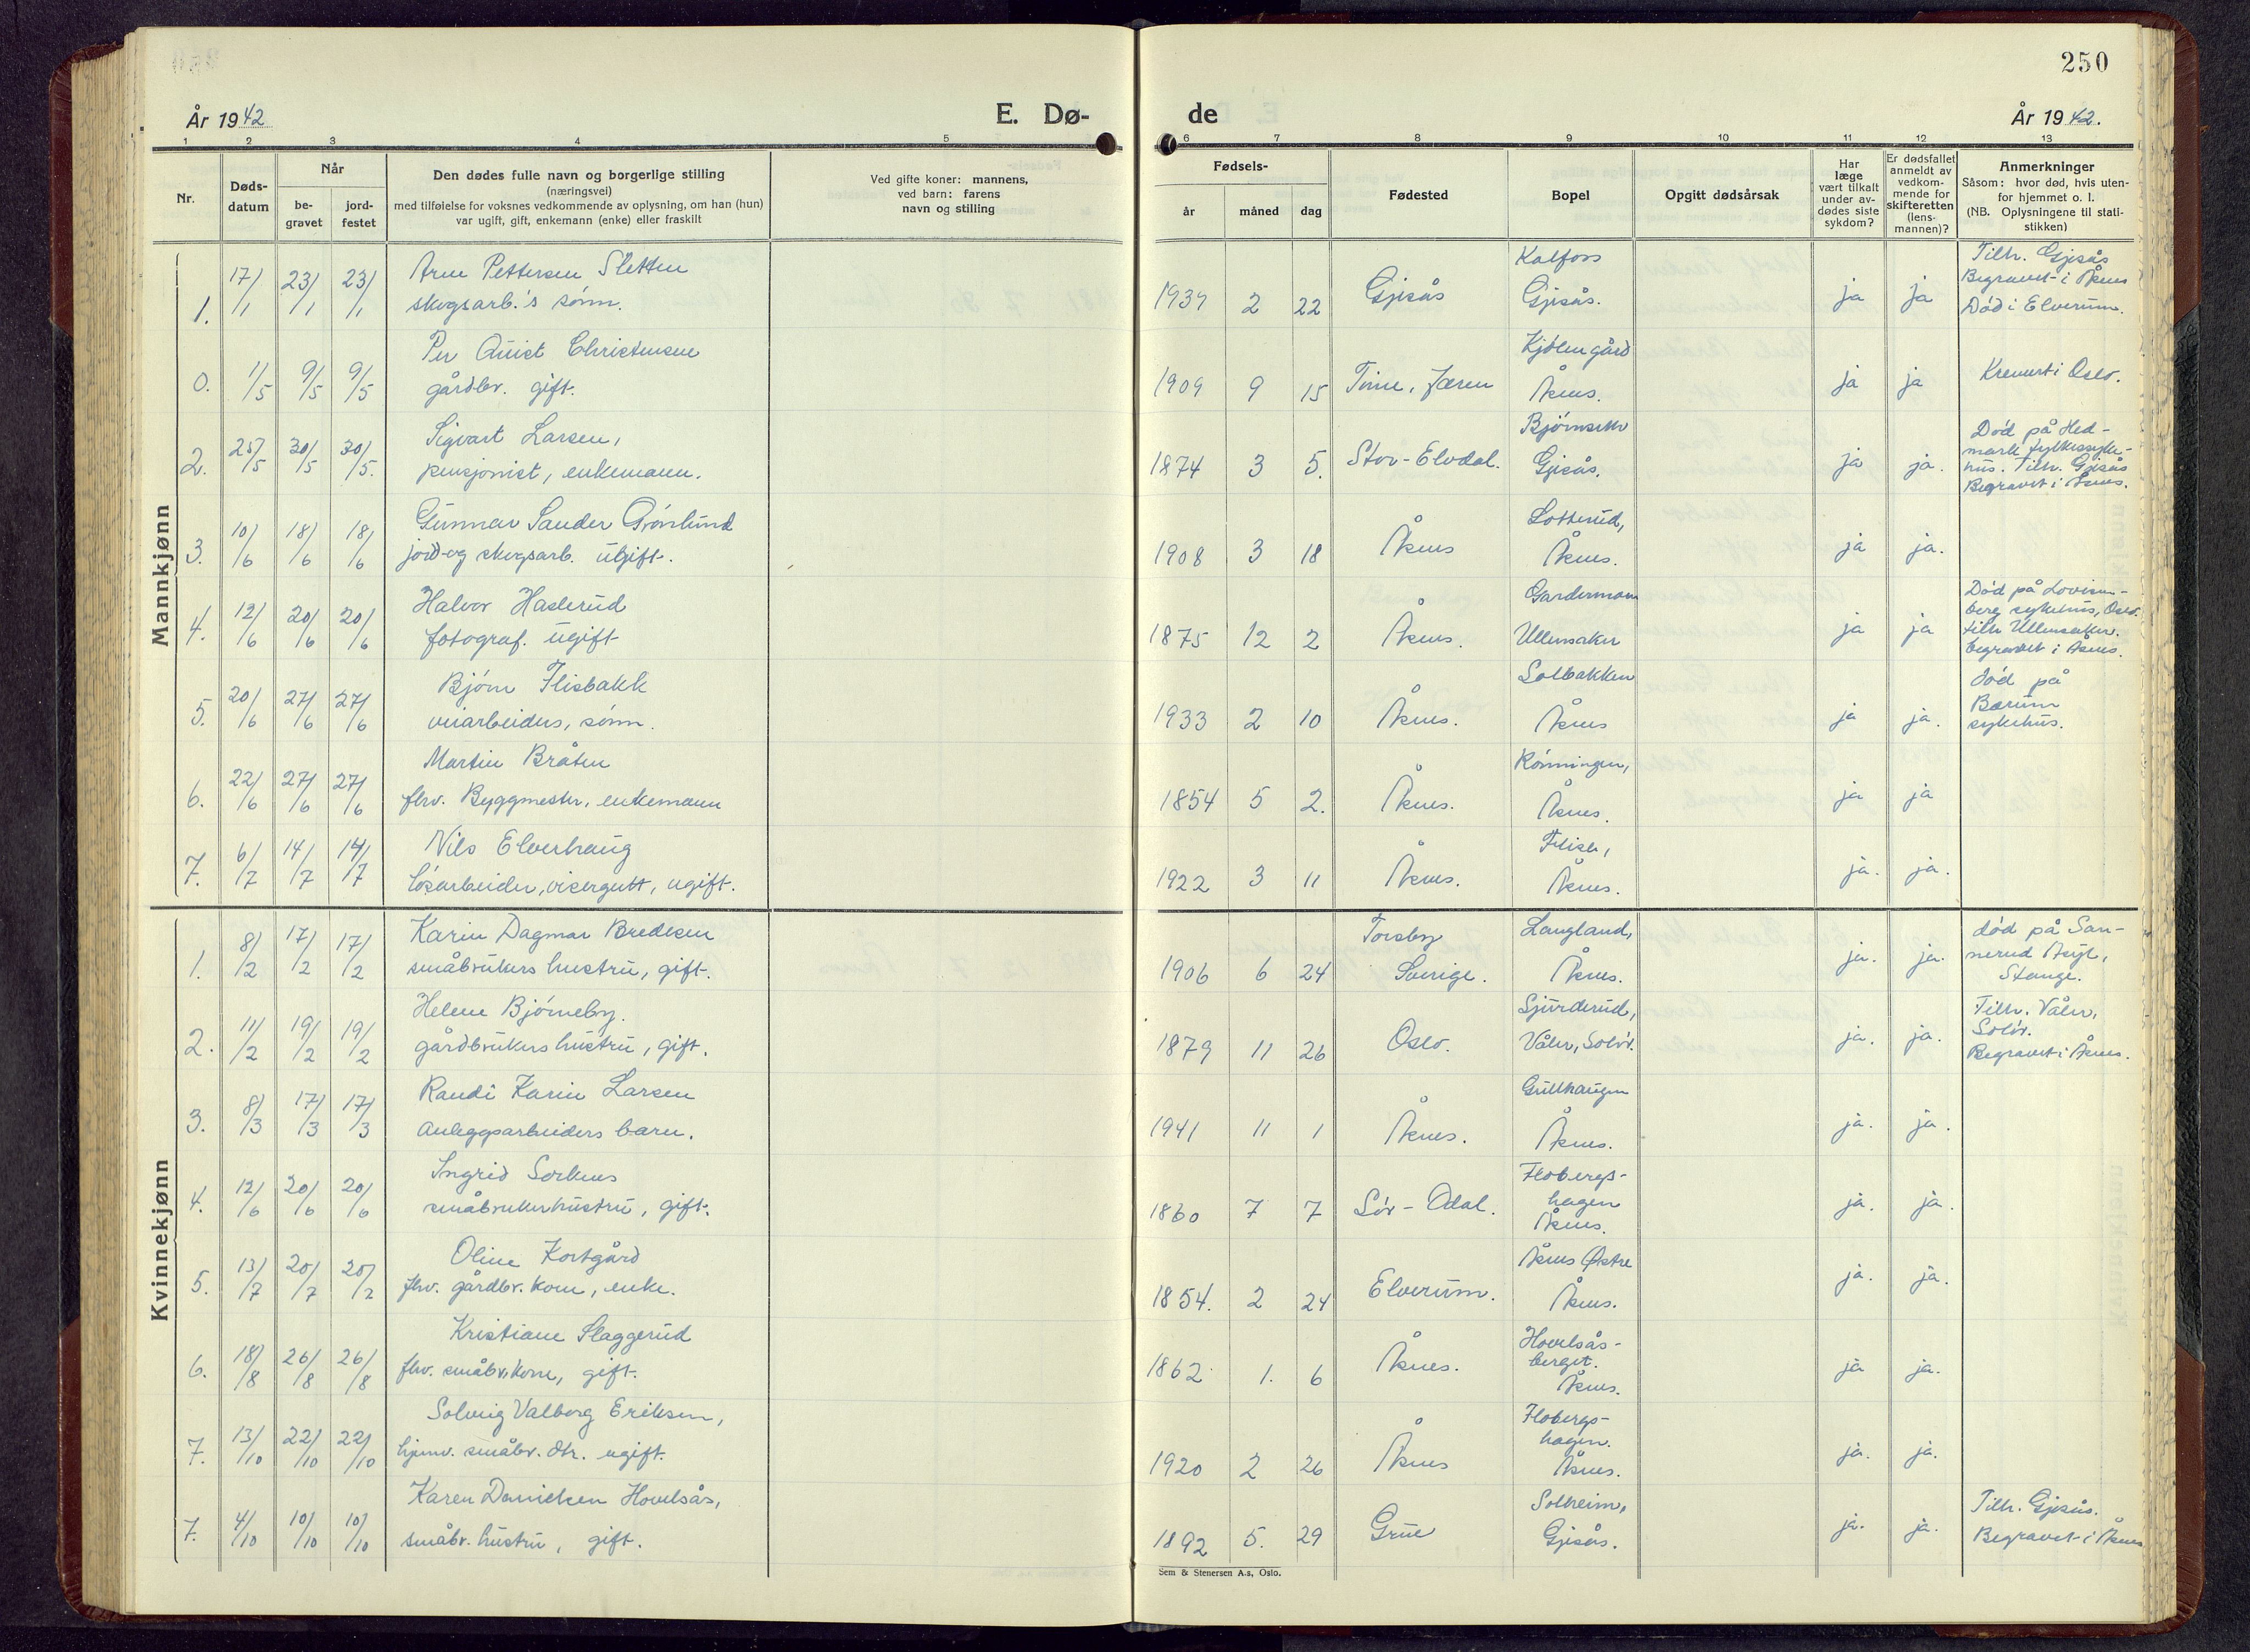 250
År 1942
E. Dø-
de
År 1942.
1 2 3 4 5 6 7 8 9 10 11 12 13
Nr.
Døds-
datum
Når
be-
gravet
jord-
festet
Den dødes fulle navn og borgerlige stilling
(næringsvei)
med tilføielse for voksnes vedkommende av oplysning, om han (hun)
var ugift, gift, enkemann (enke) eller fraskilt
Ved gifte koner: mannens,
ved barn: farens
navn og stilling
Fødsels-
år måned dag
Fødested
Bopel
Opgitt dødsårsak
Har
læge
vært tilkalt
under av-
dødes siste
sykdom?
Er dødsfallet
anmeldt av
vedkom-
mende for
skifteretten
(lens-
mannen)?
Anmerkninger
Såsom: hvor død, hvis uten-
for hjemmet o. l.
(NB. Oplysningene til stati-
stikken)
Mannkjønn
1. 17/1 23/1 23/1 Arne Pettersen Sletten
skogsarb.'s sønn.
1939 2 22 Gjesås
Kalfoss
Gjesås.
ja ja
Tilh. Gjesås
Begravet i Åsnes
Død i Elverum.
0. 1/5 9/5 9/5 Per Quist Christensen
gårdbr. gift.
1909 9 15 Time, Jæren
Kjølen gård
Åsnes.
ja ja
Kremert i Oslo.
2. 25/5 30/5 30/5. Sigvart Larsen,
pensjonist, enkemann.
1874 3 5. Stor-Elvdal.
Bjørnseth
Gjesås.
ja ja.
Død på Hed-
mark fylkessyke-
hus. Tilh. Gjesås
Begravet i Åsnes.
3. 10/6 18/6 18/6 Gunnar Sander Grønlund
jord-og skogsarb. ugift.
1908 3 18 Åsnes
Lotterud,
Åsnes.
ja ja.
4. 12/6 20/6 20/6 Halvor Haslerud
fotograf. ugift
1875 12 2 Åsnes.
Gardermoen
Ullensaker
ja ja
Død på Lovisen-
berg sykehus, Oslo.
tilh Ullensaker.
begravet i Åsnes.
5. 20/6 27/6 27/6 Bjørn Flisbakk
veiarbeiders, sønn.
1933 2 10 Åsnes.
Solbakken
Åsnes
ja ja.
død på
Bærum
sykehus.
6. 22/6 27/6 27/6 Martin Bråten
fhv. Byggmester, enkemann
1854 5 2. Åsnes.
Rønningen,
Åsnes.
ja ja
7. 6/7 14/7 14/7 Nils Elverhaug
løsarbeider, visergutt, ugift.
1922 3 11 Åsnes.
Flisa,
Åsnes.
ja. ja.
Kvinnekjønn
1. 8/2 17/2 17/2 Karin Dagmar Bredesen
småbrukers hustru, gift.
1906 6 24
Torsby
Sverige.
Langland,
Åsnes.
ja. ja.
død på San-
nerud Asyl,
Stange.
2. 11/2 19/2 19/2 Helene Bjørneby.
gårdbrukers hustru, gift.
1879 11 26 Oslo.
Sjurderud,
Våler, Solør.
ja. ja.
Tilh. Våler,
Solør.
Begravet i Åsnes.
3. 8/3 17/3 17/3 Randi Karin Larsen
Anleggsarbeiders barn.
1941 11 1 Åsnes.
Gullhaugen
Åsnes.
ja. ja.
4. 12/6 20/6 20/6 Ingrid Sorknes
småbrukerhustru, gift.
1860 7 7 Sør-Odal.
Flobergs-
hagen
Åsnes.
ja. ja.
5. 13/7 20/7 20/2 Oline Kortgård
fhv. gårdbr. kone, enke.
1854. 2 24 Elverum.
Åsnes Østre
Åsnes.
ja. ja.
6. 18/8 26/8 26/8 Kristiane Slaggerud
fhv. småbr. kone, gift.
1862 1. 6 Åsnes.
Hovelsås-
berget.
Åsnes.
ja ja.
7. 13/10 22/10 22/10 Solveig Valborg Eriksen,
hjemv. småbr. dtr. ugift.
1920 2 26 Åsnes
Flobergs-
hagen.
Åsnes.
ja. ja.
7. 4/10 10/10 10/10 Karen Danielsen Hovelsås,
småbr. hustru, gift.
1892 5. 29 Grue
Solheim,
Gjesås.
ja. ja.
Tilh. Gjesås.
Begravet i Åsnes
Sem & Stenersen A.s, Oslo.